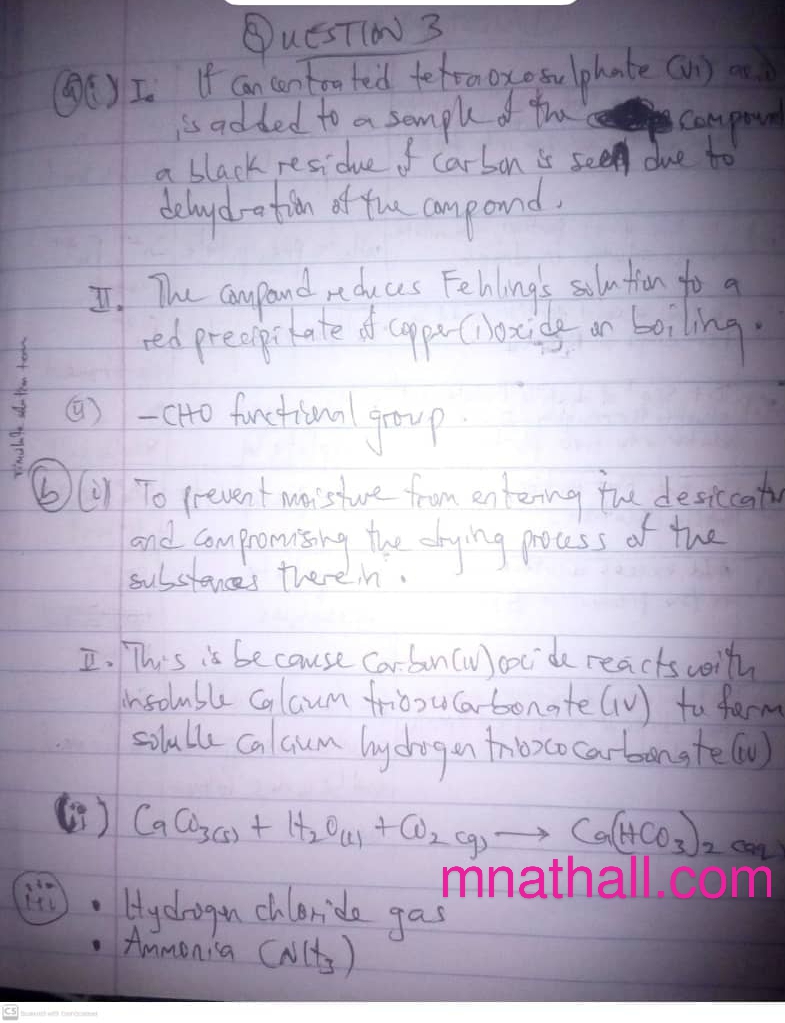 QUESTION 3
(a)(i) I. If concentrated tetraoxosulphate (VI) acid
is added to a sample of the compound
a black residue of carbon is seen due to
dehydration of the compound.
II. The compound reduces Fehling's solution to a
red precipitate of copper(i)oxide on boiling.
(ii) -CHO functional group.
(b) (i) To prevent moisture from entering the desiccator
and compromising the drying process of the
substances therein.
II. This is because carbon(iv)oxide reacts with
insoluble calcium trioxocarbonate(iv) to form
soluble calcium hydrogentrioxocarbonate(iv)
(ii) CaCO3(s) + H2O(l) + CO2(g) → Ca(HCO3)2(aq)
mnathall.com
(iii) • Hydrogen chloride gas
• Ammonia (NH3)
CS Scanned with CamScanner